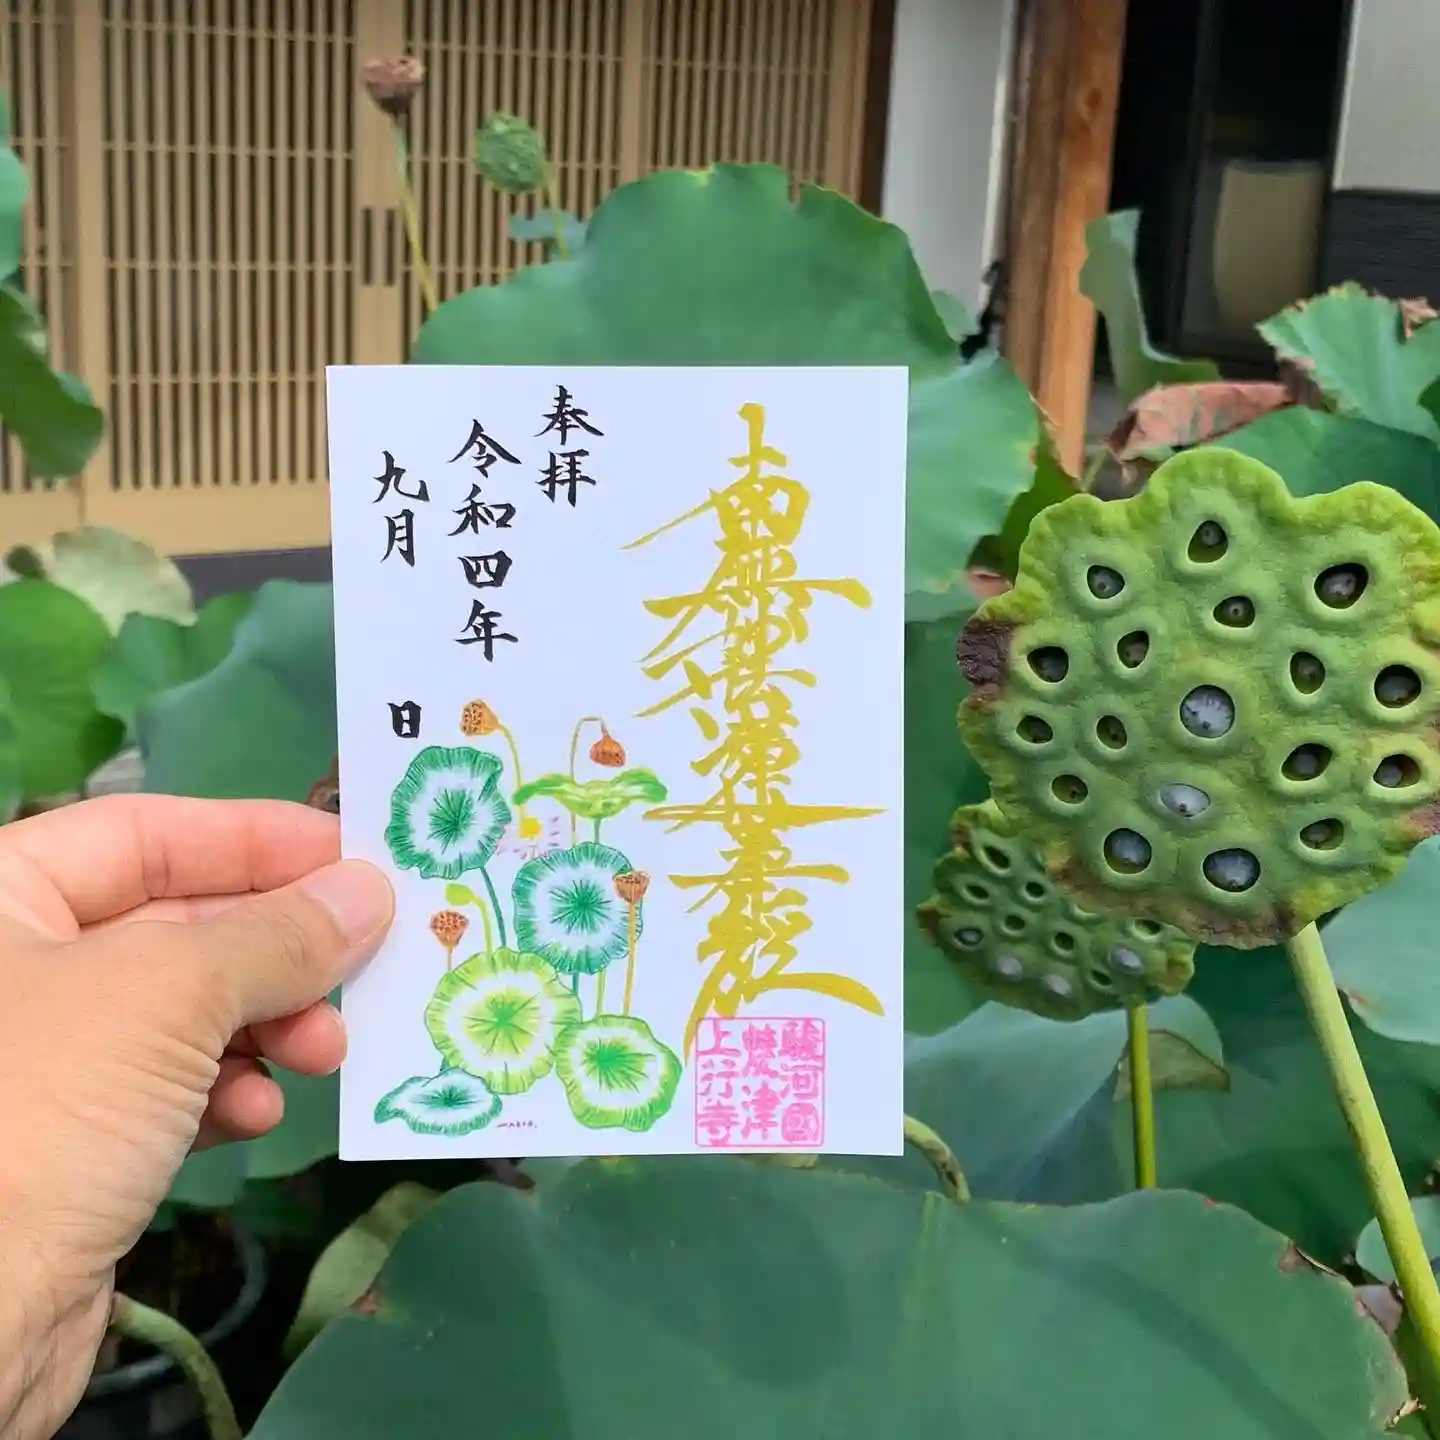 南無妙法蓮華経
駿河國
焼津
上行寺
奉拝
令和四年
九月
日